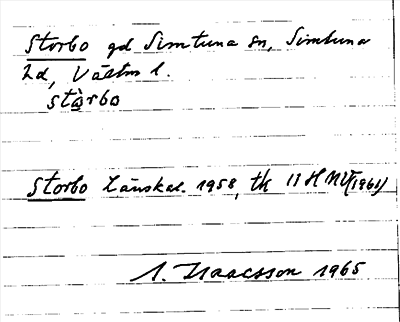 Storbo gd Simtuna sn, Simtuna
hd, Västm l.
stòrbo
Storbo Länskal. 1958, tk 11 H NV (1961)
I. Isaacsson 1965